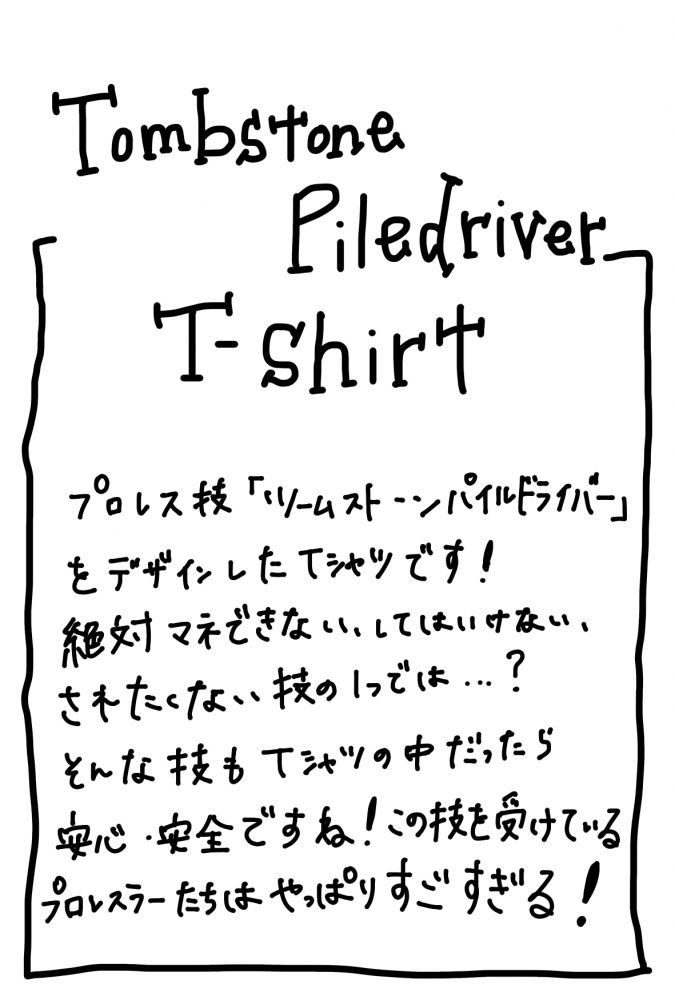 Tombstone
Piledriver
T-shirt
プロレス技「ツームストーンパイルドライバー」
をデザインしたTシャツです!
絶対マネできない、してはいけない、
されたくない技の1つでは…?
そんな技もTシャツの中だったら
安心・安全ですね!この技を受けている
プロレスラーたちはやっぱりすごすぎる!